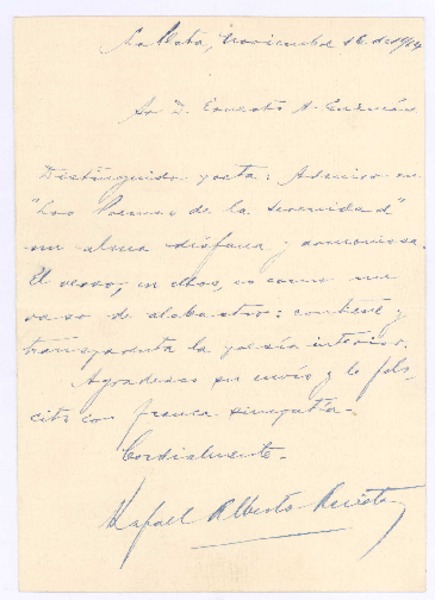 La Plata, Noviembre 16 de 1914
Sr D. Ernesto A. Guzmán
Distinguido poeta: Admiro en
"Los Poemas de la serenidad"
un alma diáfana y armoniosa.
El verso, en ellos, es como un
vaso de alabastro: contiene y
transparenta la poesía interior.
Agradezco su envío y le feli-
cito con franca simpatía.
Cordialmente.
Rafael Alberto Arrieta